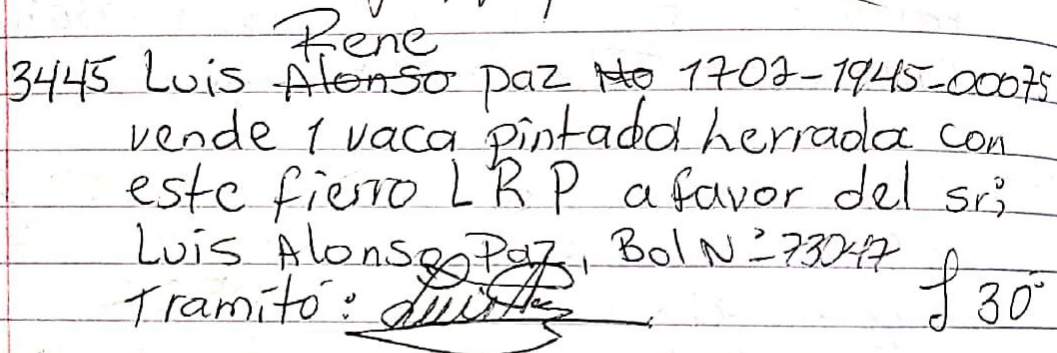 Rene
3445 Luis Alonso paz No 1707-1945-00075
vende 1 vaca pintada herrada con
este fierro L R P a favor del sr;
Luis Alonso Paz, Bol Nº 73047
Tramitó:
£ 30